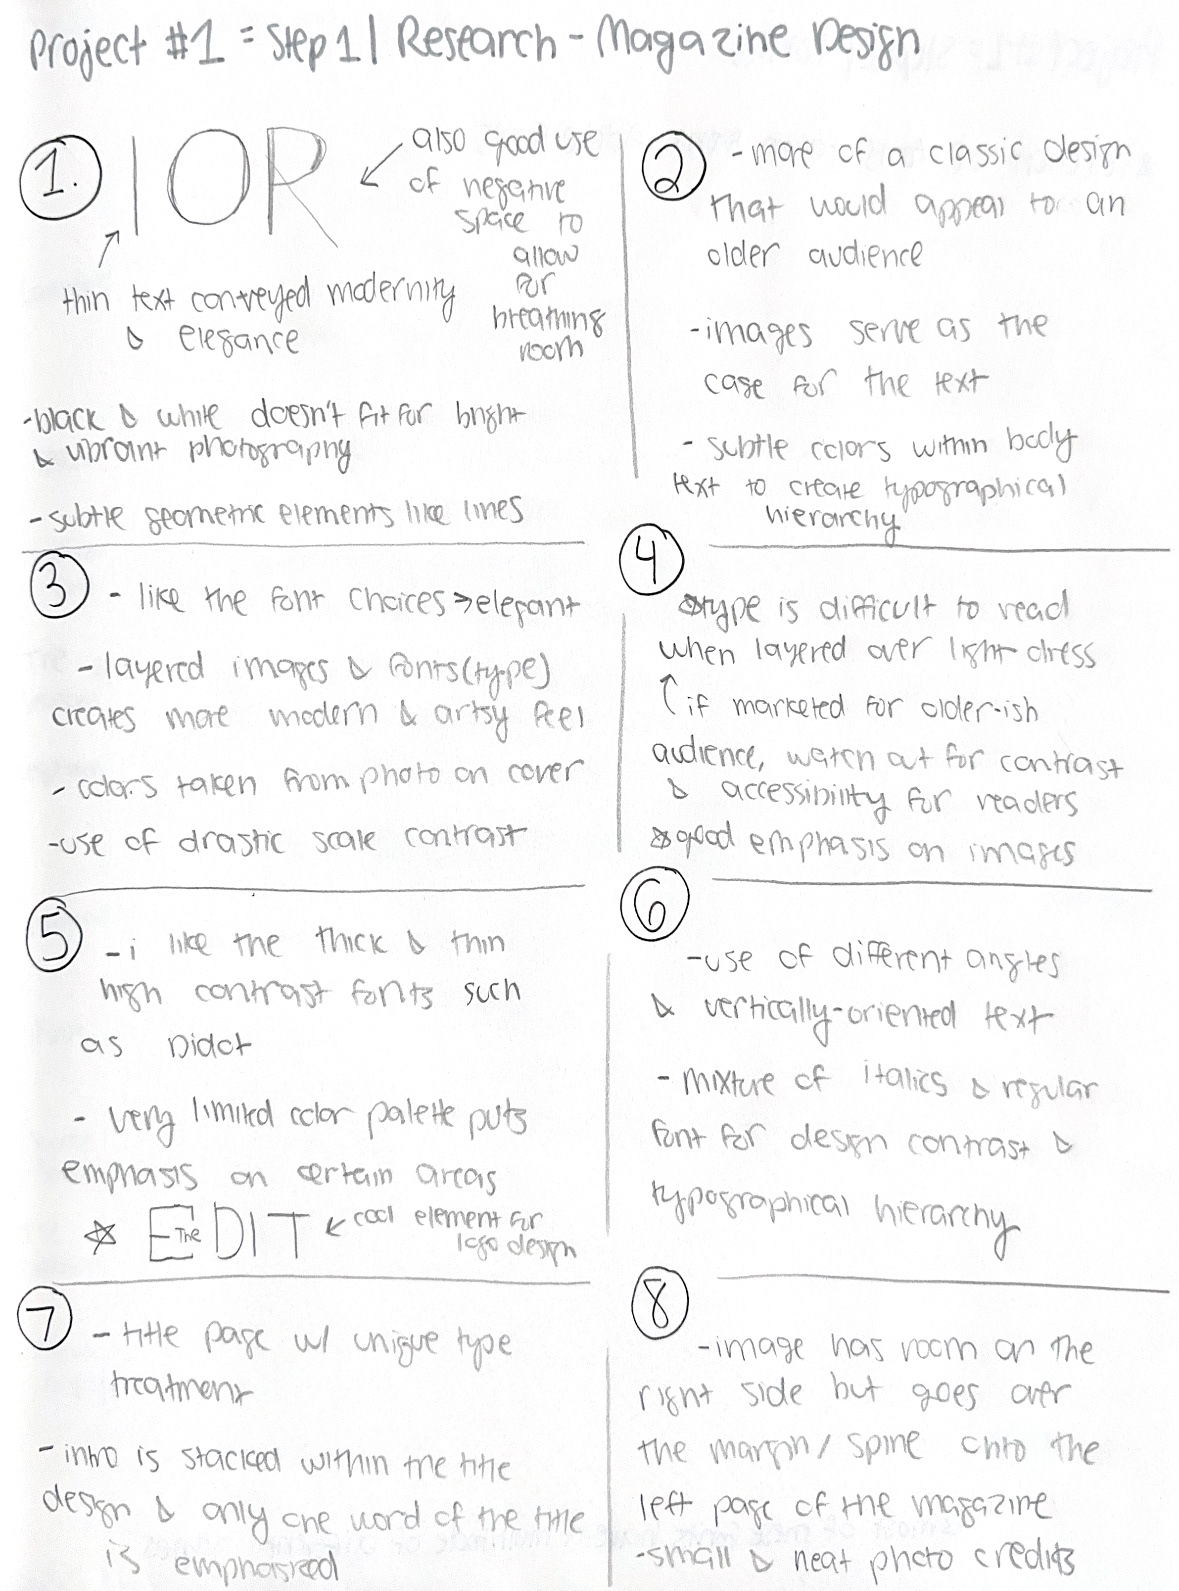 Project #1 = Step 1 | Research - Magazine Design
1.
IOR
also good use
of negative
space to
allow
for
breathing
room
thin text conveyed modernity
& elegance
-black & white doesn't fit for bright
& vibrant photography
-subtle geometric elements like lines
2
-more of a classic design
that would appeal to an
older audience
-images serve as the
case for the text
- subtle colors within body
text to create typographical
hierarchy
3
- like the font choices → elegant
- layered images & fonts (type)
creates more modern & artsy feel
- colors taken from photo on cover
-use of drastic scale contrast
4
type is difficult to read
when layered over light dress
↑ if marketed for older-ish
audience, watch out for contrast
& accessibility for readers
good emphasis on images
5
-i like the thick & thin
high contrast fonts such
as Didot
- very limited color palette puts
emphasis on certain areas
☆ The EDIT ← cool element for
logo design
6
-use of different angles
& vertically-oriented text
- mixture of italics & regular
font for design contrast &
typographical hierarchy
7
- title page w/ unique type
treatment
- intro is stacked within the title
design & only one word of the title
is emphasized
8
-image has room on the
right side but goes over
the margin / spine onto the
left page of the magazine
-small & neat photo credits